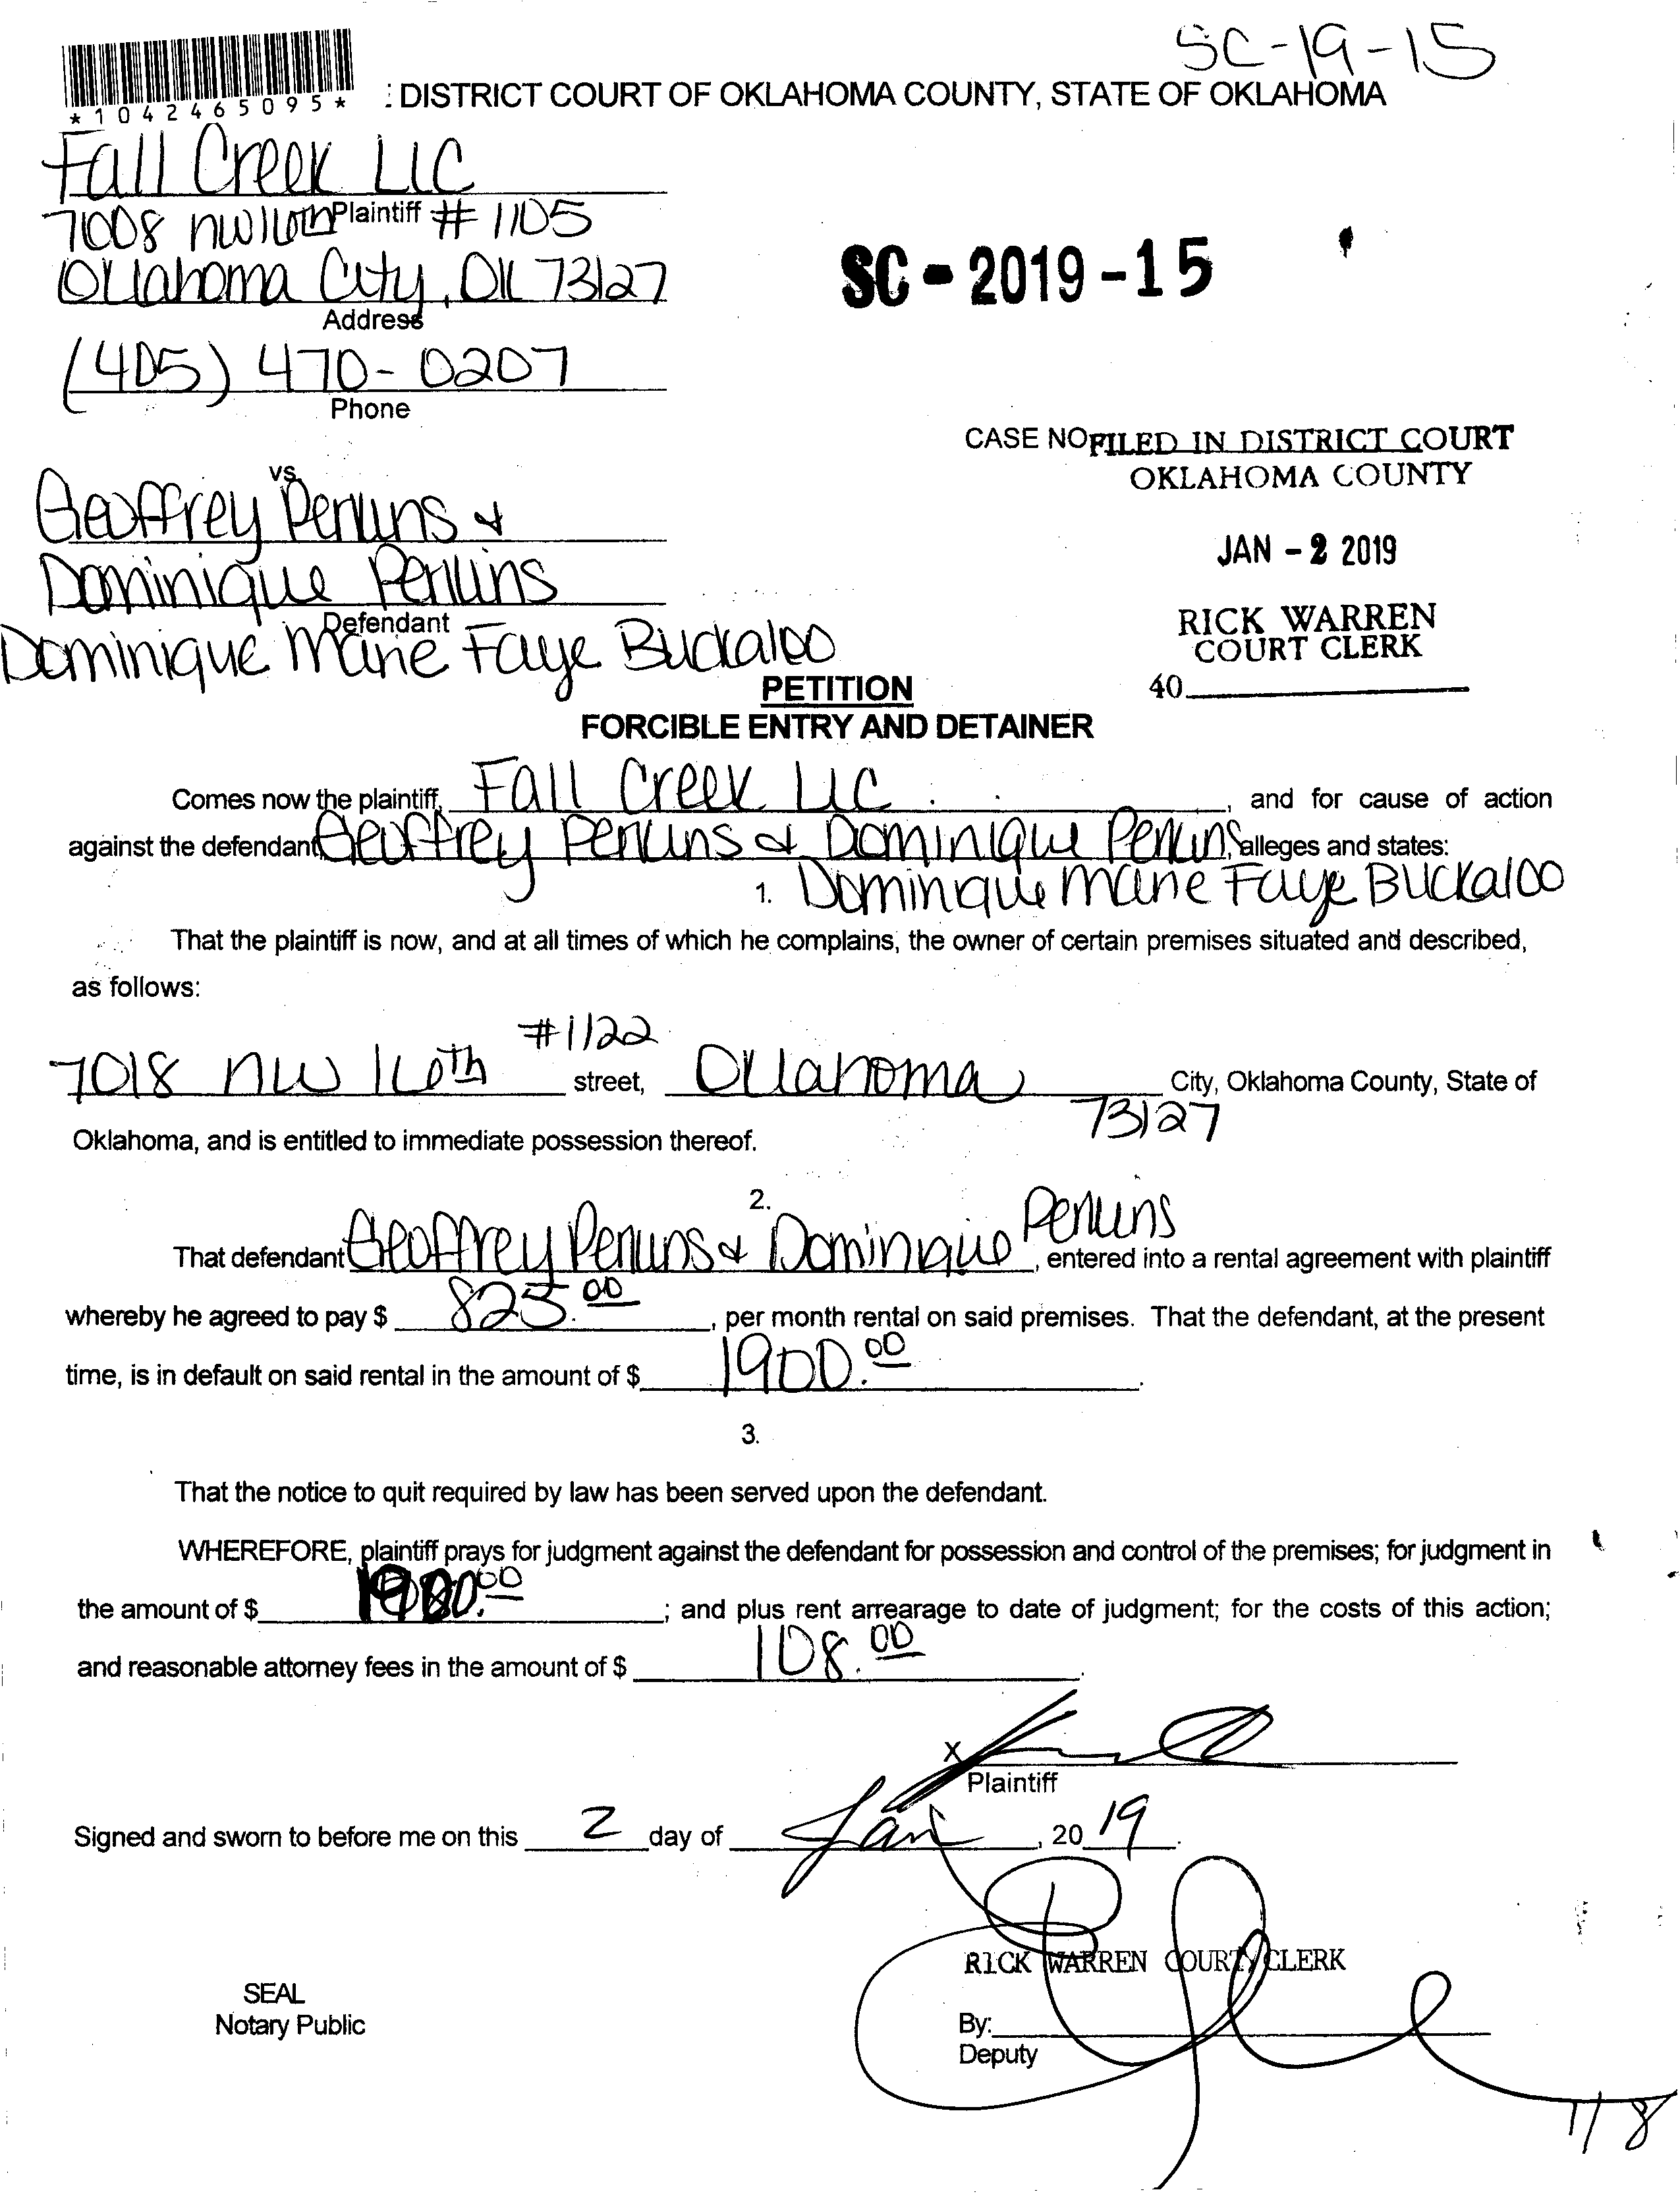 SC-19-15
*1042465095*
: DISTRICT COURT OF OKLAHOMA COUNTY, STATE OF OKLAHOMA
Fall Creek LLC
Plaintiff
7008 NW 16th #1105
Oklahoma City, OK 73127
Address
SC-2019-15
(405) 470-0207
Phone
CASE NO
FILED IN DISTRICT COURT
OKLAHOMA COUNTY
vs.
Geoffrey Perkins &
JAN -2 2019
Dominique Perkins
Defendant
RICK WARREN
COURT CLERK
Dominique Marie Faye Buckaloo
40
PETITION
FORCIBLE ENTRY AND DETAINER
Comes now the plaintiff, Fall Creek LLC, and for cause of action
against the defendant, Geoffrey Perkins & Dominique Perkins alleges and states:
1. Dominique Marie Faye Buckaloo
That the plaintiff is now, and at all times of which he complains, the owner of certain premises situated and described,
as follows:
#1122
7018 NW 16th street, Oklahoma City, Oklahoma County, State of
73127
Oklahoma, and is entitled to immediate possession thereof.
2.
That defendant Geoffrey Perkins & Dominique Perkins, entered into a rental agreement with plaintiff
whereby he agreed to pay $ 825.00, per month rental on said premises. That the defendant, at the present
time, is in default on said rental in the amount of $ 1900.00.
3.
That the notice to quit required by law has been served upon the defendant.
WHEREFORE, plaintiff prays for judgment against the defendant for possession and control of the premises; for judgment in
the amount of $ 1900.00; and plus rent arrearage to date of judgment; for the costs of this action;
and reasonable attorney fees in the amount of $ 108.00.
X
Plaintiff
Signed and sworn to before me on this 2 day of Jan, 20 19.
RICK WARREN COURT CLERK
SEAL
Notary Public
By:
Deputy
1/8